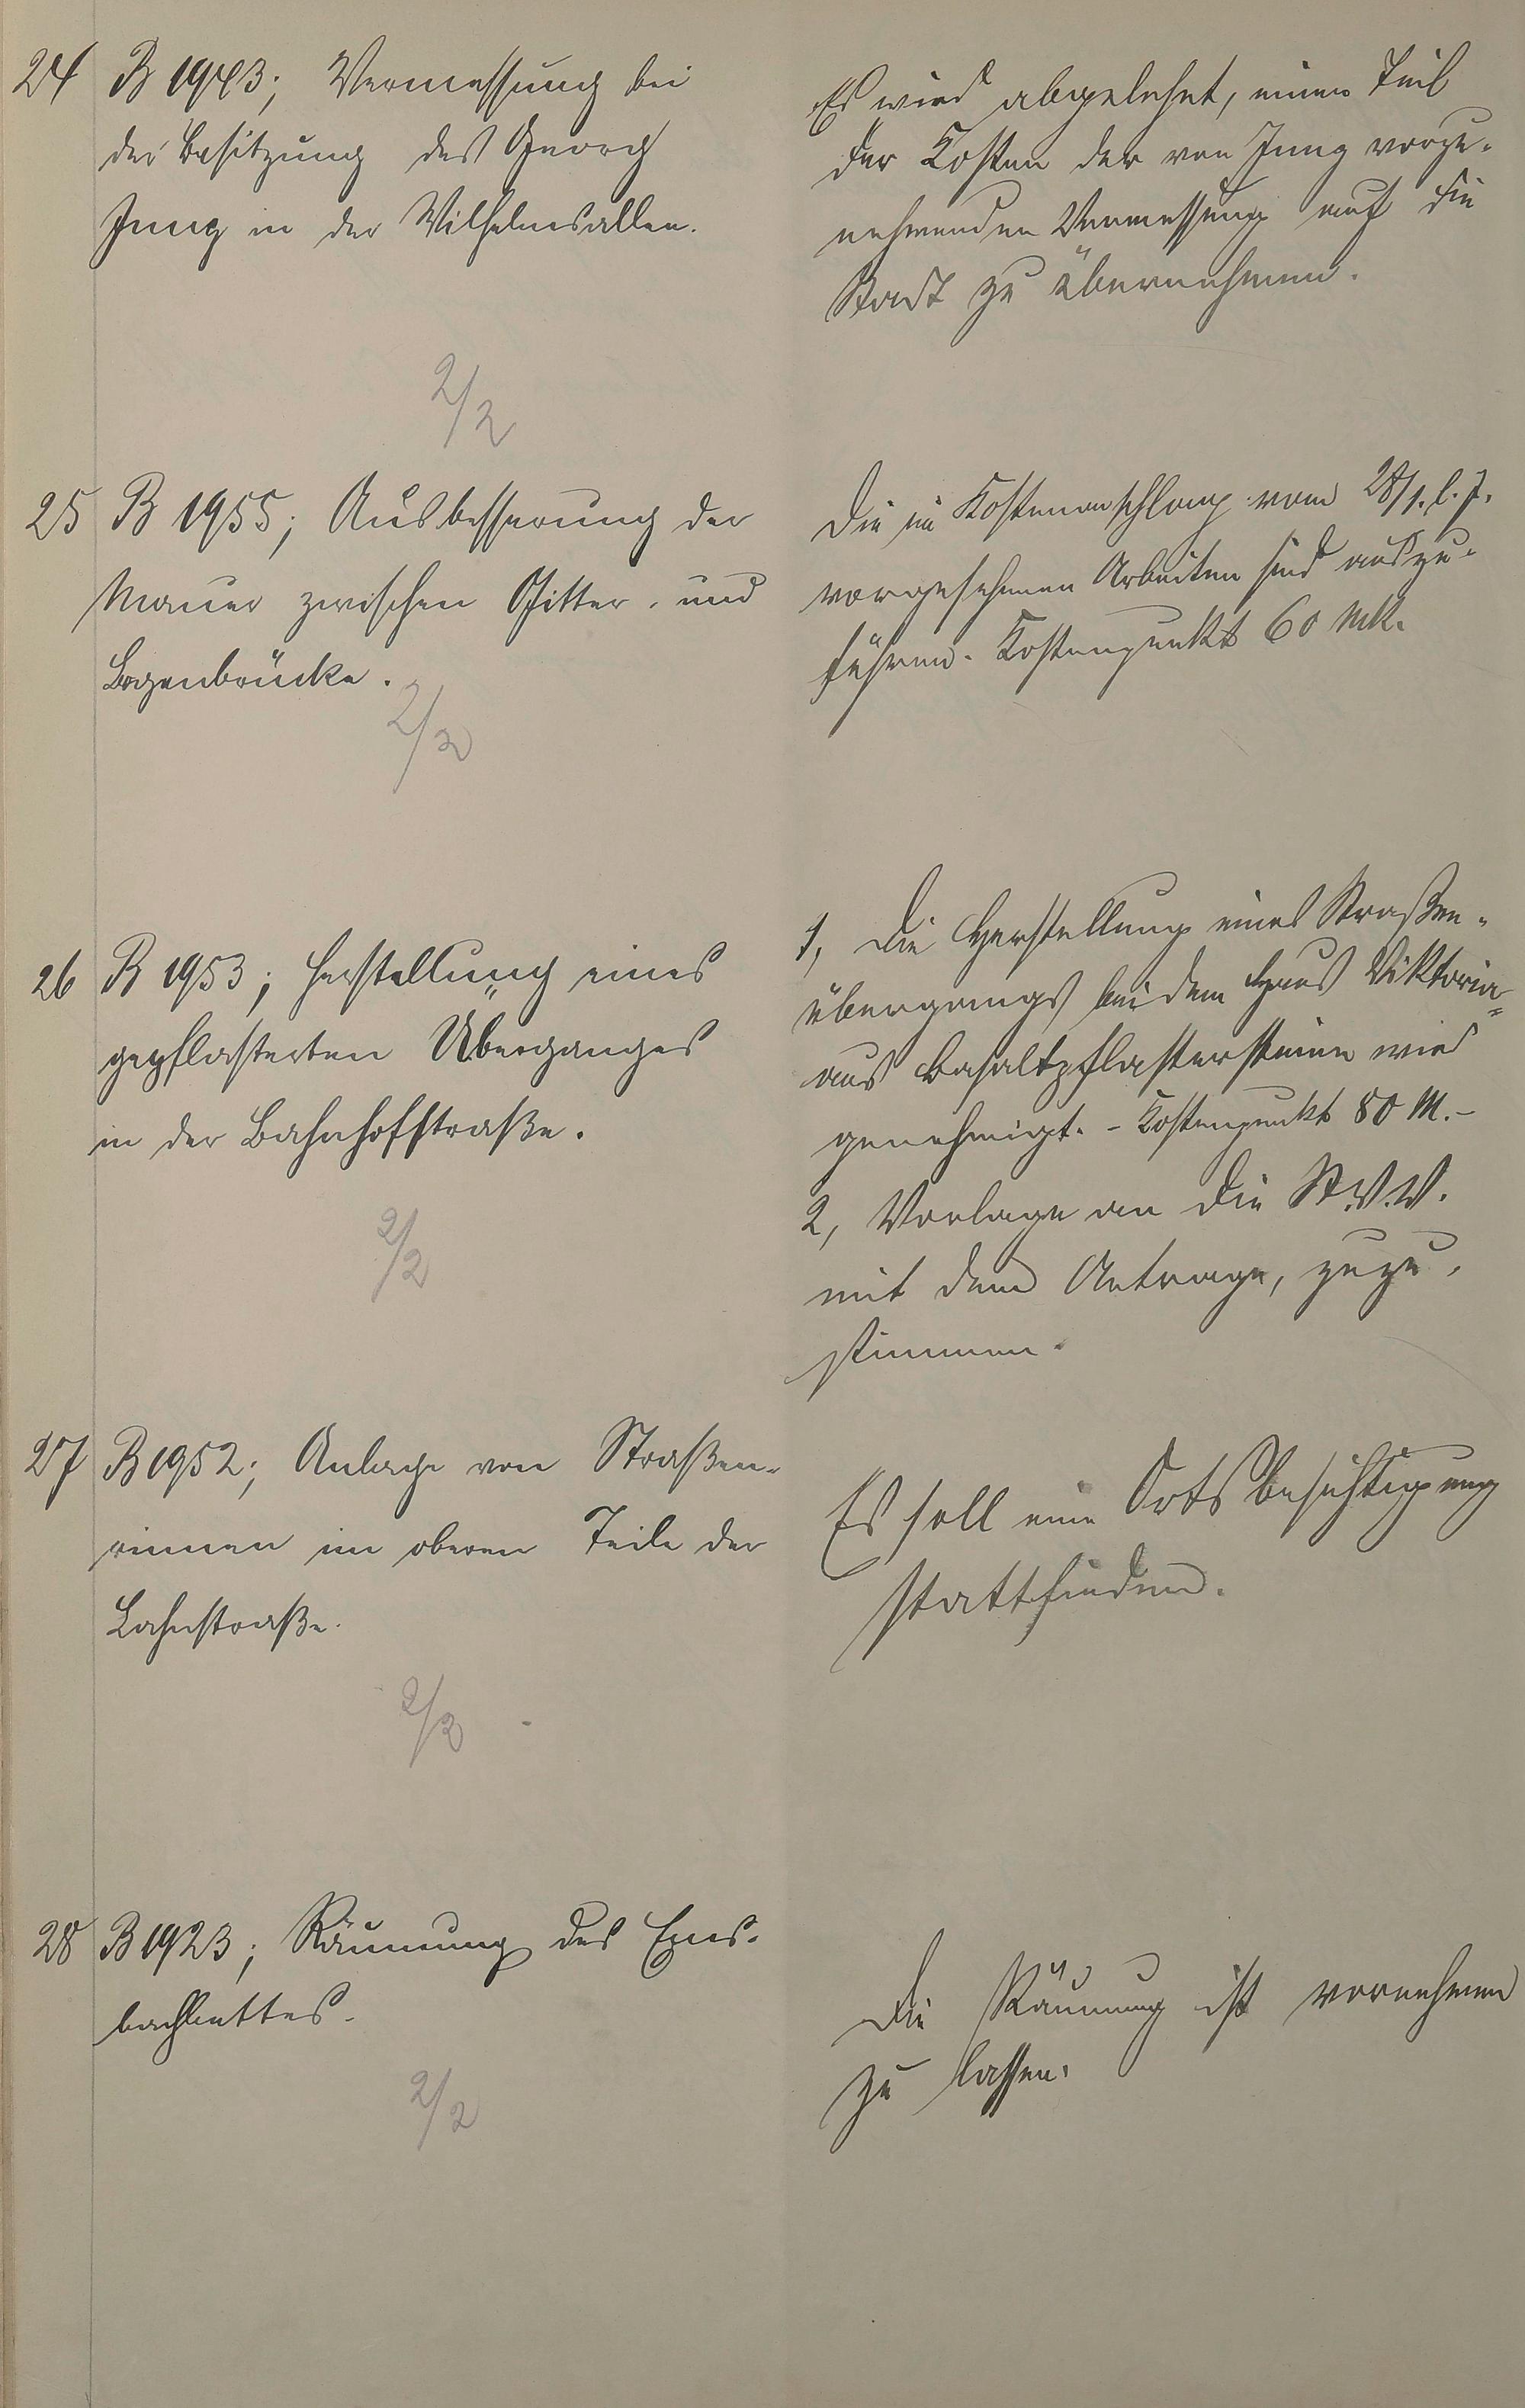 24 B 1943; Vermessung bei
der Besitzung des Georg
Jung in der Wilhelmsallee.
Es wird abgelehnt, einen Teil
der Kosten der von Jung vorzu-
nehmenden Vermessung auf die
Stadt zu übernehmen.
2/2
25 B 1955; Ausbesserung der
Mauer zwischen Gitter- und
Bogenbrücke.
Die im Kostenanschlag vom 28/1. l. J.
vorgesehenen Arbeiten sind auszu-
führen. Kostenpunkt 60 Mk.
2/2
26 B 1953; Herstellung eines
gepflasterten Überganges
in der Bahnhofstraße.
1, Die Herstellung eines Straßen-
übergangs bei dem Haus Viktoria
aus Basaltpflastersteinen wird
genehmigt. - Kostenpunkt 80 M.-
2, Vorlage an die St.V.V.
mit dem Antrage, zuzu-
stimmen.
2/2
27 B 1952; Anlage von Straßen-
rinnen im oberen Teile der
Lahnstraße.
Es soll eine Ortsbesichtigung
stattfinden.
2/2
28 B 1923; Räumung des Ems-
bachbettes.
Die Räumung ist vornehmen
zu lassen.
2/2